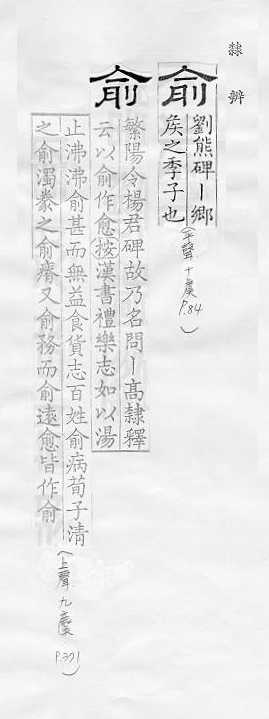 隸辨
俞 劉熊碑丨鄉
矦之季子也
(平聲十虞 P.84)
俞 繁陽令楊君碑故乃名問丨高隸釋
云以俞作愈按漢書禮樂志如以湯
止沸沸俞甚而無益食貨志百姓俞病荀子清
之俞濁豢之俞瘠又俞務而俞遠愈皆作俞
(上聲九麌 P.371)